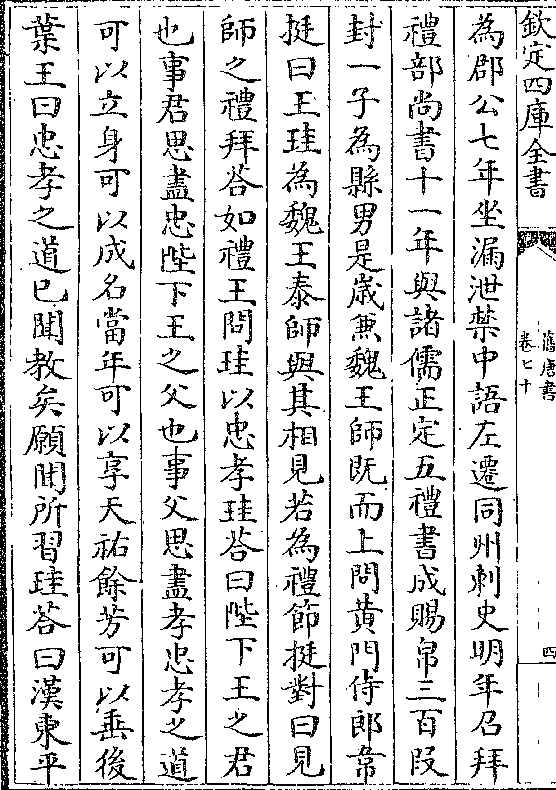 欽定四庫全書
舊唐書
卷七十
四
為郡公七年坐漏泄禁中語左遷同州刺史明年召拜
禮部尚書十一年與諸儒正定五禮書成賜帛三百段
封一子為縣男是歲兼魏王師既而上問黄門侍郎韋
挺曰王珪為魏王泰師與其相見若為禮節挺對曰見
師之禮拜荅如禮王問珪以忠孝珪荅曰陛下王之君
也事君思盡忠陛下王之父也事父思盡孝忠孝之道
可以立身可以成名當年可以享天祐餘芳可以垂後
葉王曰忠孝之道已聞教矣願聞所習珪荅曰漢東平